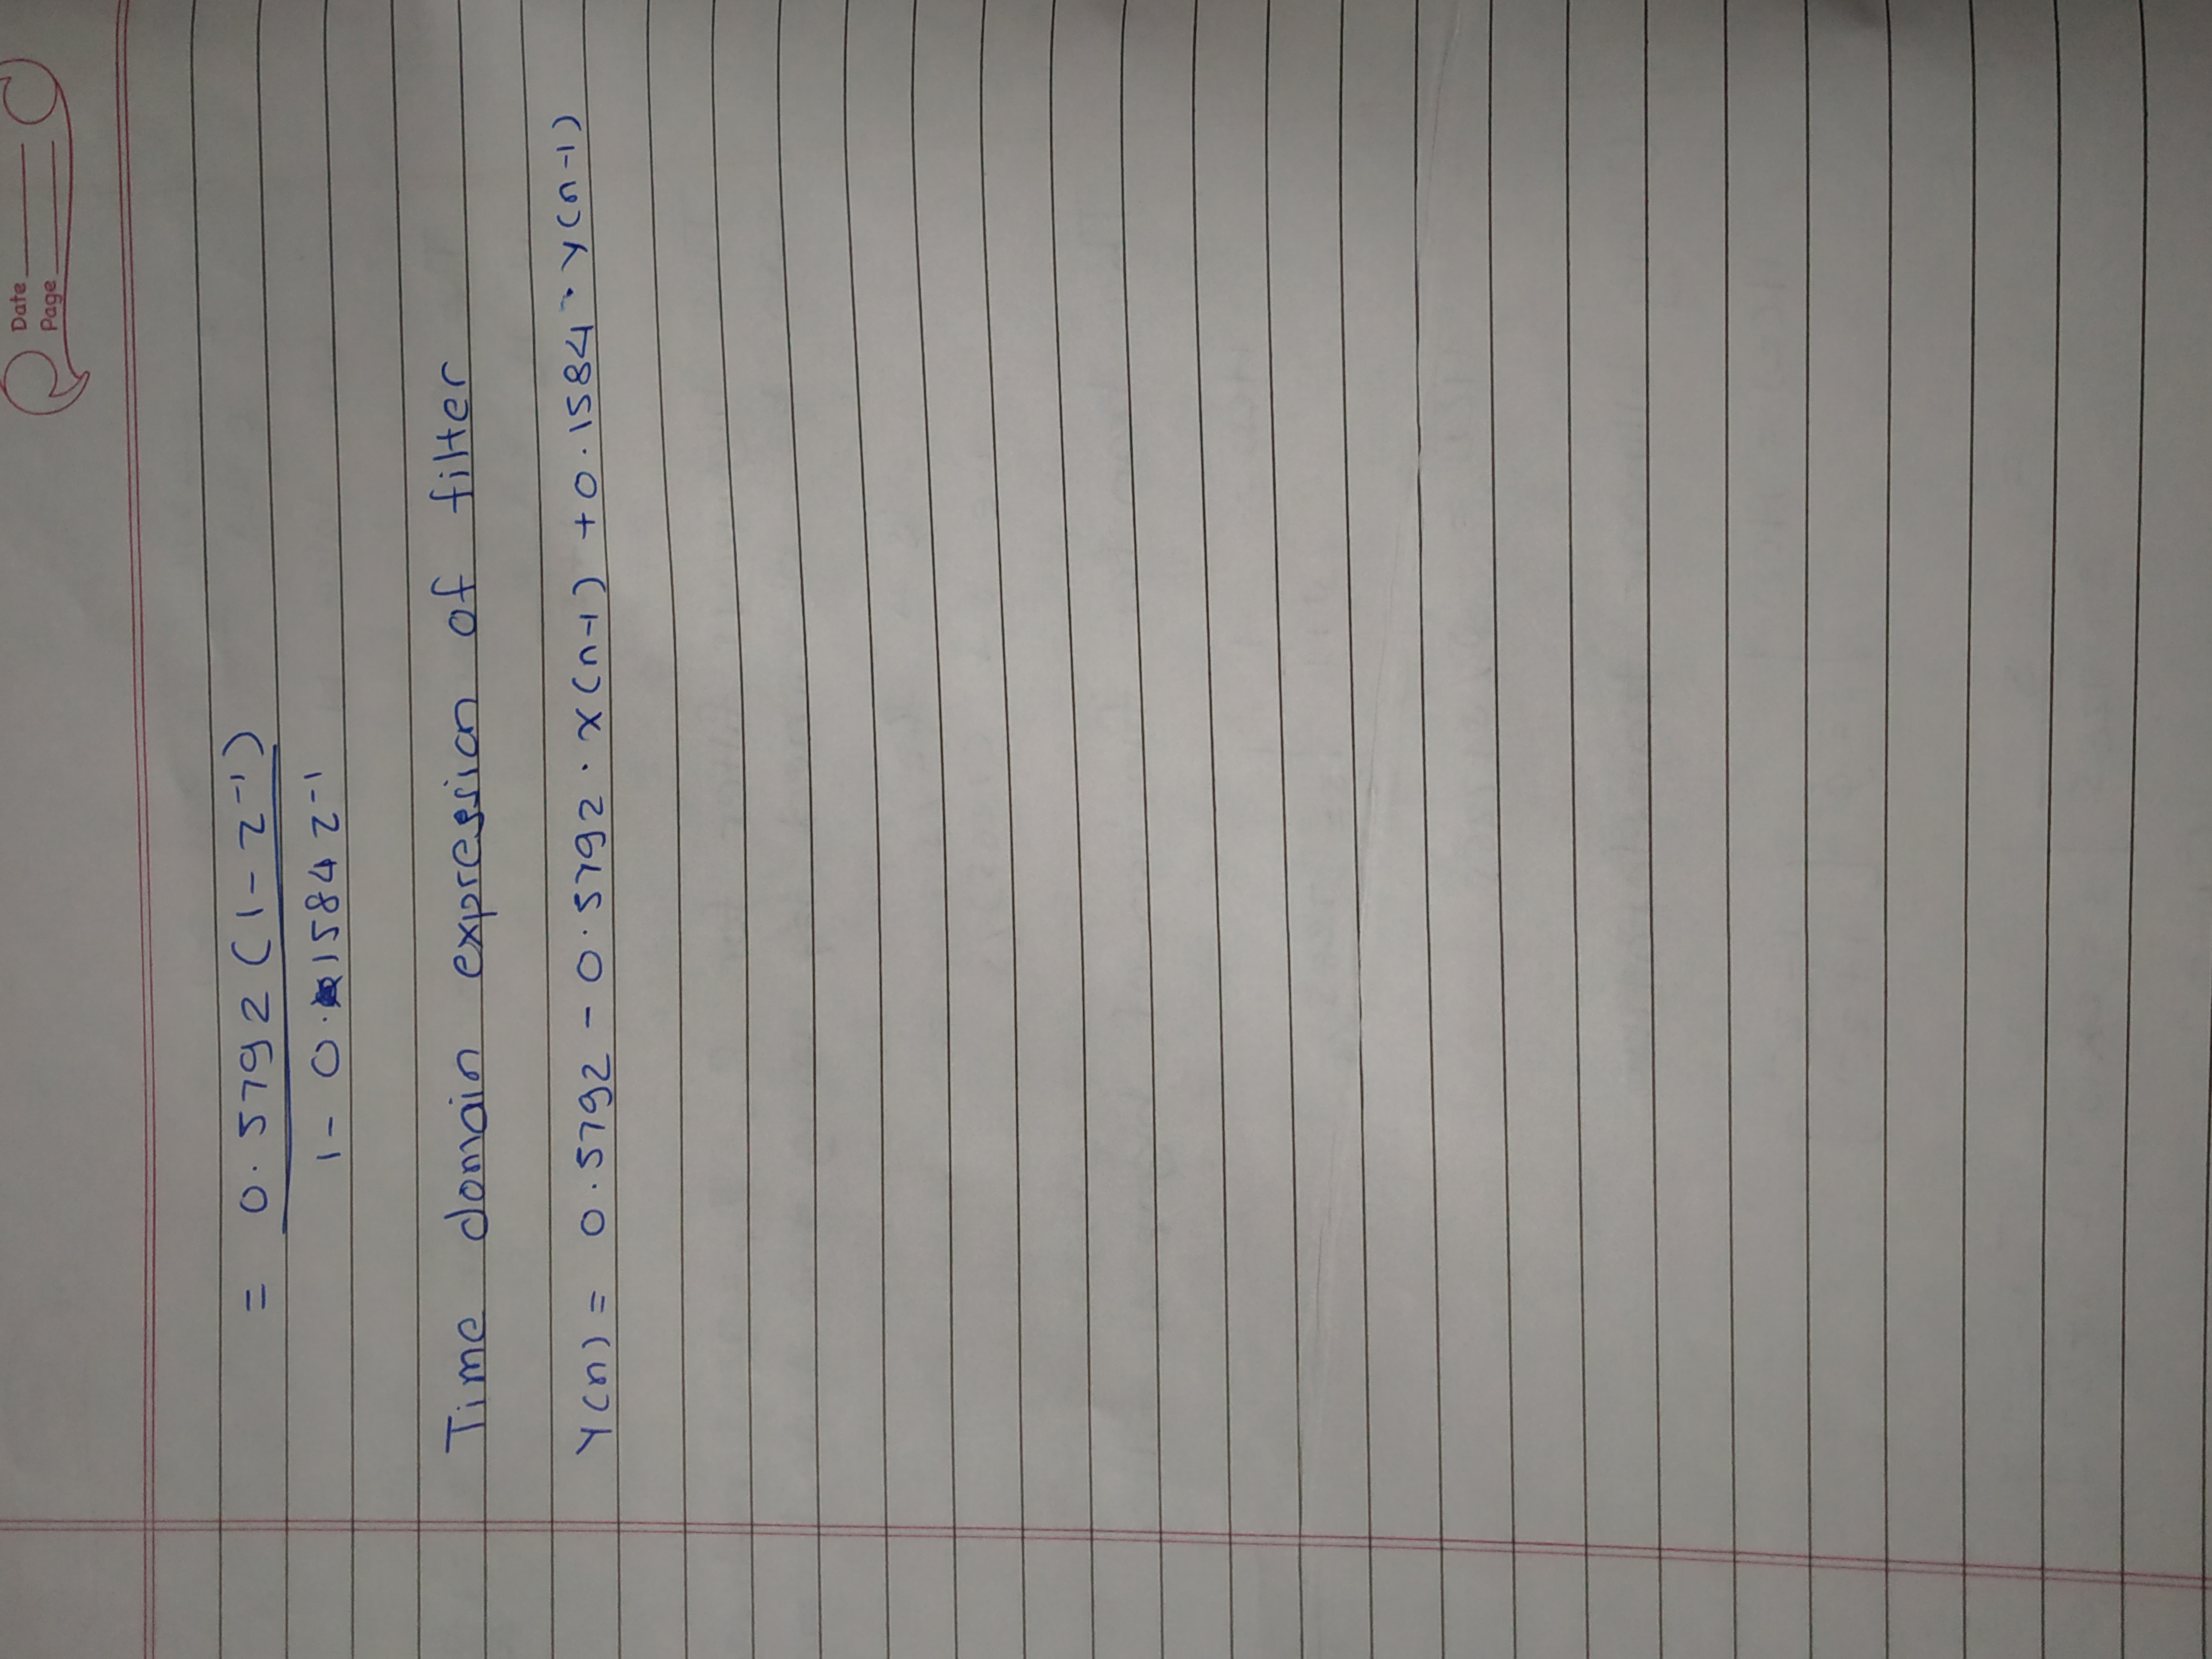 Date
Page
= 0.5792 (1 - z⁻¹)
1 - 0.1584 z⁻¹
Time domain expression of filter
Y(n) = 0.5792 - 0.5792 · x(n-1) + 0.1584 · y(n-1)